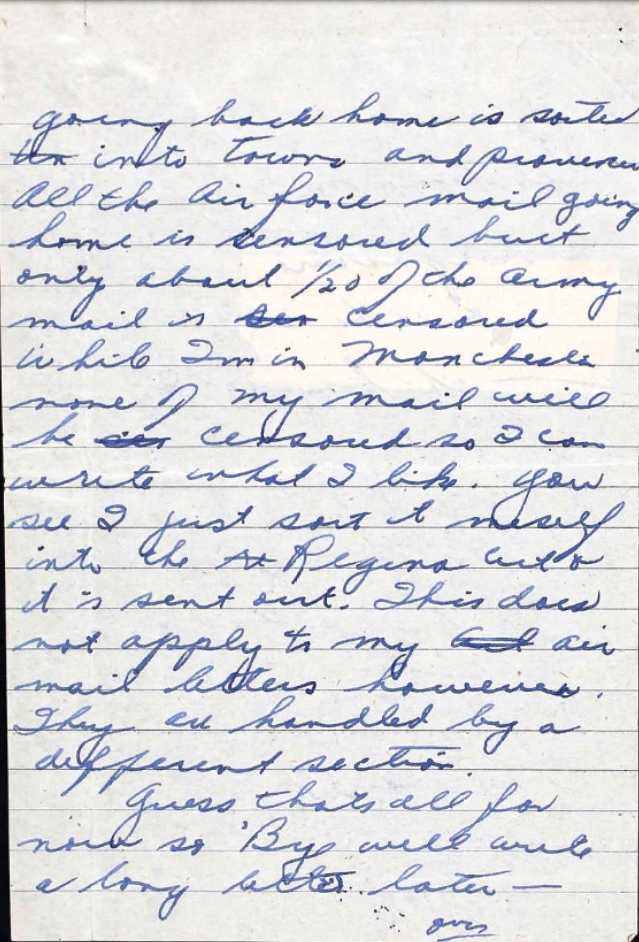 going back home is sorted
into towns and provinces
All the Air force mail going
home is censored but
only about 1/20 of the army
mail is censored
While I'm in Manchester
none of my mail will
be censored so I can
write what I like. You
see I just sort it meself
into the Regina &
it is sent out. This does
not apply to my air
mail letters however.
They are handled by a
different section.
Guess thats all for
now so 'Bye will write
a long letter later —
over